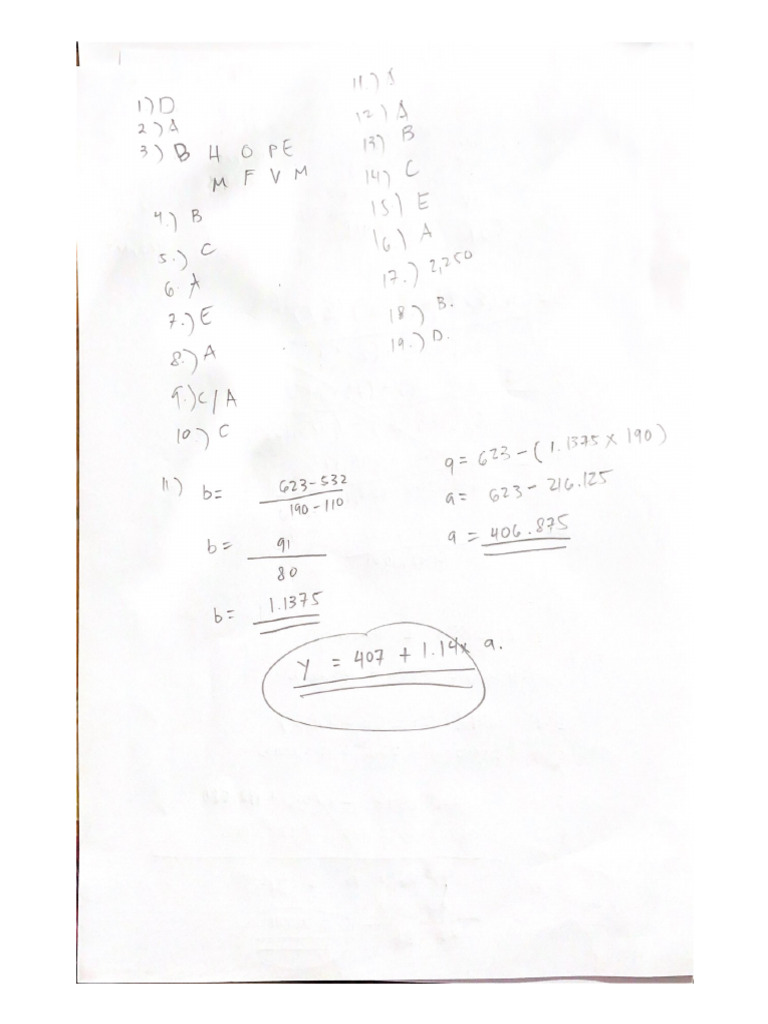 1) D
2) A
3) B H O PE
M F V M
4.) B
5.) C
6. A
7.) E
8.) A
9.) C/A
10.) C
11.) S
12) A
13) B
14) C
15) E
16) A
17.) 2,250
18) B.
19.) D.
11) b= 623-532
190-110
b= 91
80
b= 1.1375
a= 623-(1.1375 x 190)
a= 623- 216.125
a = 406.875
y = 407 + 1.14x a.